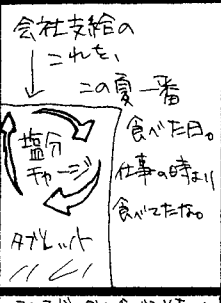 会社支給の
これを、
この夏一番
食べた日。
仕事の時より
食べてたな。
塩分
チャージ
タブレット